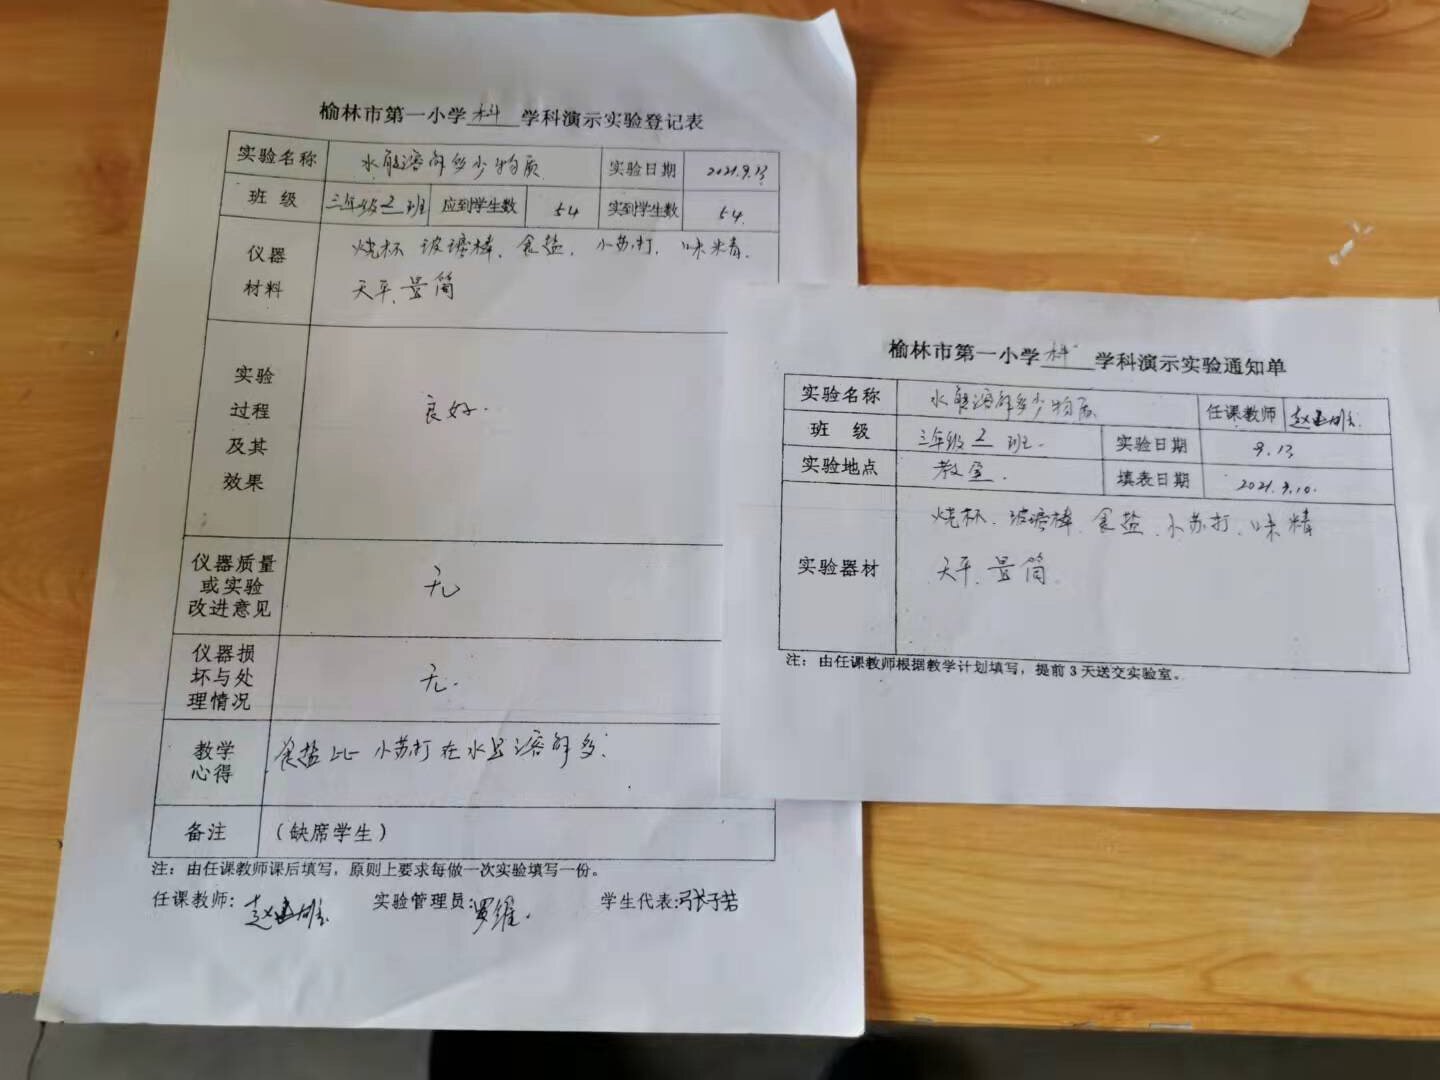 榆林市第一小学 科 学科演示实验登记表
实验名称 水能溶解多少物质 实验日期 2021.9.13
班 级 三年级 2 班 应到学生数 54 实到学生数 54
仪器材料 烧杯 玻璃棒、食盐、小苏打、味精、
天平、量筒
实验过程及其效果 良好.
仪器质量或实验改进意见 无
仪器损坏与处理情况 无.
教学心得 食盐比小苏打在水里溶解多.
备注 (缺席学生)
注：由任课教师课后填写，原则上要求每做一次实验填写一份。
任课教师: 赵 实验管理员: 罗维. 学生代表: 张子若
榆林市第一小学 科 学科演示实验通知单
实验名称 水能溶解多少物质 任课教师 赵
班 级 三年级 2 班. 实验日期 9.13
实验地点 教室. 填表日期 2021.9.10.
实验器材 烧杯、玻璃棒、食盐、小苏打、味精
天平、量筒.
注：由任课教师根据教学计划填写，提前 3 天送交实验室。